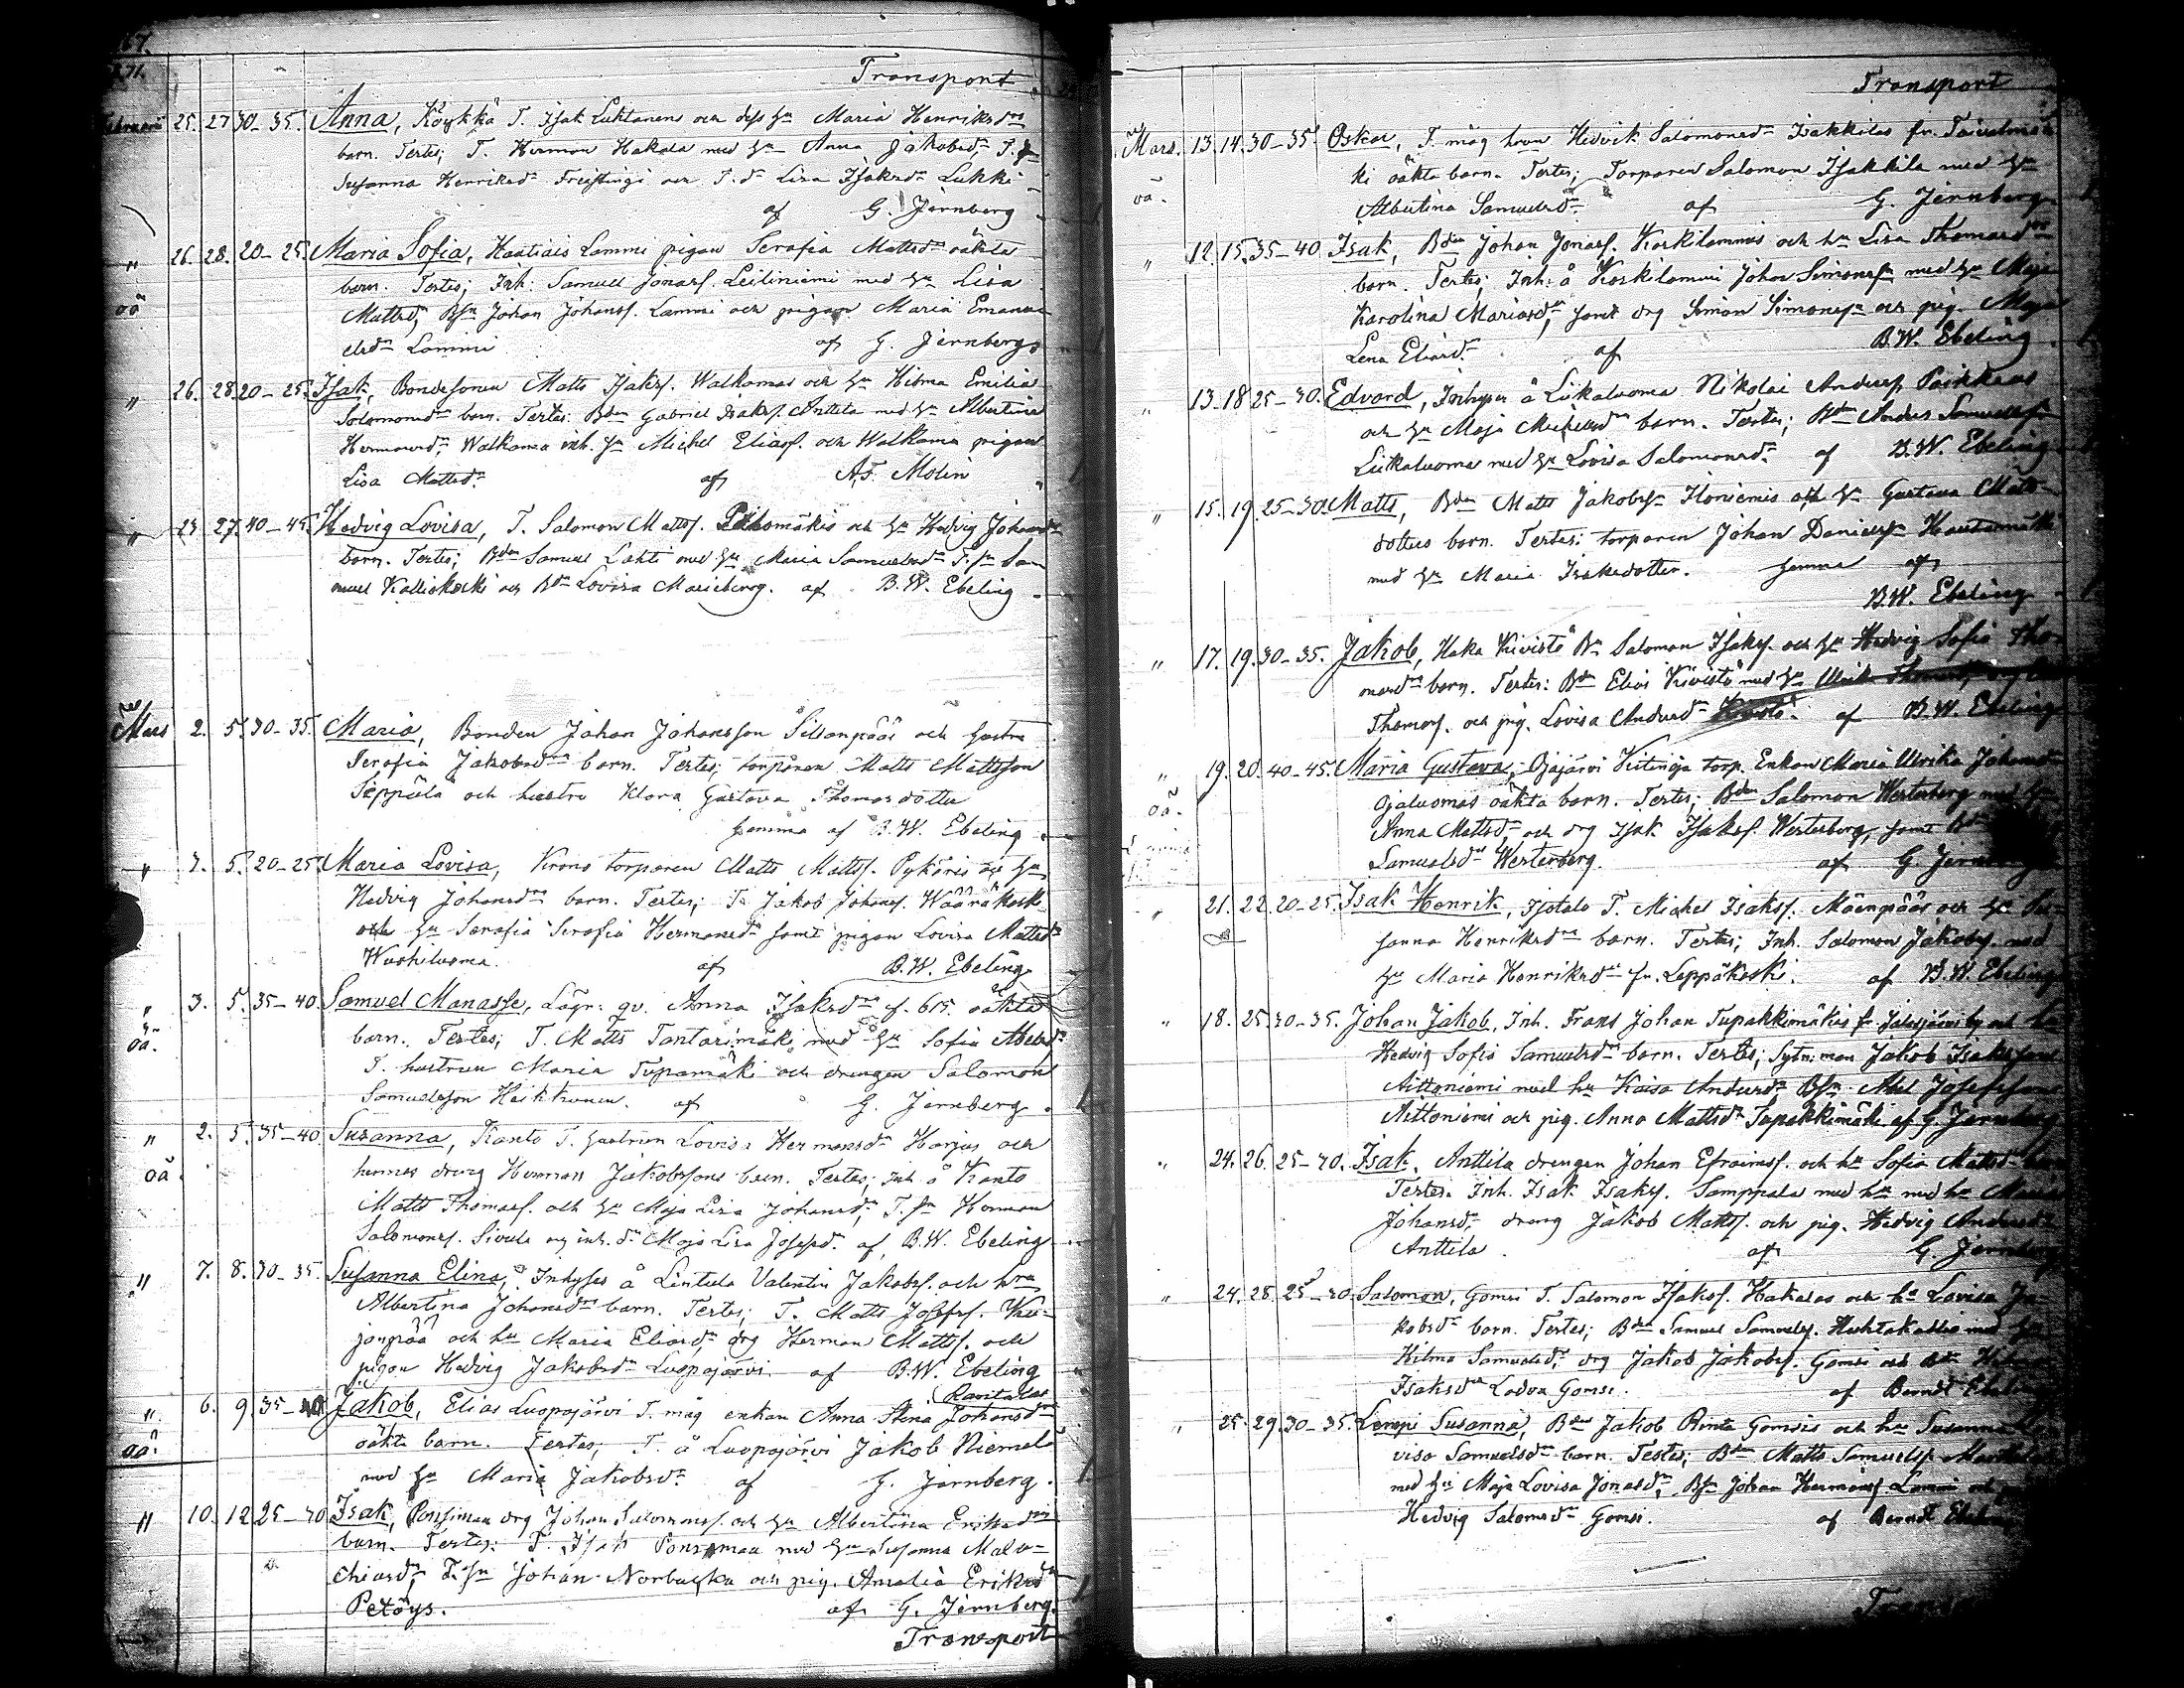 67.
1871.
Transport
Februari 25. 27. 30–35. Anna, Köykkä T. Isak Luktanens och dess hu Maria Henriksdrs
barn. Testes; T. Herman Hakala med hu Anna Jakobsdr, T.
Susanna Henriksdr Freistingi och T.dr Lisa Isaksdr Lukki
af G. Jernberg
" 26. 28. 20–25. Maria Sofia, Lammi pigan Serafia Mattsdrs oäkta
oä barn. Testes; Inh. Samuel Jonass. Leiliniemi med hu Lisa
Mattsdr, Bsn Johan Johanss. Lammi och pigan Maria Emanu-
elsdr Lammi af G. Jernberg
" 26. 28. 20–25. Isak, Bondesonen Matts Isakss. Walkamas och hu Hilma Emilia
Salomonsdrs barn. Testes: Bdn Gabriel Isakss. Anttila med hu Albertina
Hermansdr, Walkama inh. sn Michel Eliass. och Walkama pigan
Lisa Mattsdr. af A.F. Molin
" 23. 27. 40–45. Hedvig Lovisa, T. Salomon Mattss. och hu Hedvig Johansdrs
barn. Testes; Bdn Samuel Lahti med hu Maria Samuelsdr T. sn Sa-
muel Kalliokoski och Bdr Lovisa Marieberg. af B.W. Ebeling
Mars 2. 5. 30–35. Maria, Bonden Johan Johansson Sillanpääs och hustru
Serafia Jakobsdrs barn. Testes; torparen Matts Mattsson
Seppälä och hustru Klara Gustava Thomasdotter
hemma af B.W. Ebeling
" 1. 5. 20–25. Maria Lovisa, Krono torparen Matts Mattss. Pykäris och hu
Hedvig Johansdrs barn. Testes; T. Jakob Johanss. Wäänäkoski
och hu Serafia Serafia Hermansdr samt pigan Lovisa Mattsdr
af B.W. Ebeling
" 3. 5. 35–40. Samuel Manasse, Lägr. qv. Anna Isaksdrs f. 615. oäkta
oä. barn. Testes; T. Matts Tantarimäki med hu Sofia Abelsdr
T. hustrun Maria Tupamäki och drengen Salomon
Samuelsson af G. Jernberg
" 2. 5. 35–40. Susanna, Kanto T. hustrun Lovisa Hermansdr Harjus och
oä. hennes dreng Herman Jakobssons barn. Testes; Inh. å Kanto
Matts Thomass. och hu Maja Lisa Johansdr, T. sn Herman
Salomonss. Sivula och inh. dr Maja Lisa Josefsdr. af B.W. Ebeling
" 7. 8. 30–35. Susanna Elina, Inhyses å Lintula Valentin Jakobss. och hrus
Albertina Johansdrs barn. Testes; T. Matts Josefss. Ku-
janpää och hu Maria Eliasdr, drg Herman Mattss. och
pigan Hedvig Jakobsdr Luopajärvi af B.W. Ebeling
" 6. 9. 35–40. Jakob, Elias Luopajärvi T. måg enkan Anna Stina Johansdrs (Rantalas
oä. oäkta barn. Testes; T. å Luopajärvi Jakob Niemelä
med hu Maria Jakobsdr. af G. Jernberg
" 10. 12. 25–30. Isak, Ponsimaa drg Johan Salomonss. och hu Albertina Eriksdrs
barn. Testes: T. Isak Ponsimaa med hu Susanna Mala-
chiasdr, T. sn Johan Norbacka och pig. Amalia Eriksdr
Petäys. af G. Jernberg.
Transport
Transport
Mars. 13. 14. 30–35. Oskar, T. mag hrun Hedvik Salomonsdr Isakkilas fr.
oä. ki oäkta barn. Testes; Torparen Salomon Isakkila med hu
Albertina Samuelsdr. af G. Jernberg
" 12. 15. 35–40. Isak, Bdn Johan Jonass. Koskilammis och hu Lisa Thomasdrs
barn. Testes; Inh. å Koskilammi Johan Simonssn med hu Maja
Karolina Mariasdr, samt drg Simon Simonssn och pig. Maja
Lena Eliasdr. af B.W. Ebeling
" 13. 18. 25–30. Edvard, Inhyses å Liikaluoma Nikolai Anderss.
och hu Maja barn. Testes; Bdn Anders Samuelssn
Liikaluoma med hu Lovisa Salomonsdr. af B.W. Ebeling
" 15. 19. 25–30. Matts, Bdn Matts Jakobssn Iloniemis och hu Gustava Matts-
dotters barn. Testes: torparen Johan Danielssn
med hu Maria Isaksdotter. hemma af
B.W. Ebeling
" 17. 19. 30–35. Jakob, Haka Kivistö Bn Salomon Isakss. och hu Hedvig Sofia Tho-
masdrs barn. Testes: Bdn Elias Kivistö med hu
Thomass. och pig. Lovisa Andersdr af B.W. Ebeling
" 19. 20. 40–45. Maria Gustava, Ojajärvi Kitinoja torp. Enkan Maria Ulrika Johansdr
oä. Ojaluomas oäkta barn. Testes; Bdn Salomon Westerberg med hu
Anna Mattsdr och drg Isak Isakss. Westerberg, samt
Samuelsdr Westerberg. af G. Jernberg
" 21. 22. 20–25. Isak Henrik, T. Michel Isakss. Mäenpääs och hu Su-
sanna Henriksdrs barn. Testes; Inh. Salomon Jakobs. med
hu Maria Henriksdr fr. Leppäkoski. af B.W. Ebeling
" 18. 25. 30–35. Johan Jakob, Inh. Frans Johan Tupakkimäkis fr Jalasjärvi by och hu
Hedvig Sofia Samuelsdrs barn. Testes; Sytn:man Jakob Isaksson
Aittoniemi med hu Kaisa Andersdr Bsn Abel Josefsson
Aittoniemi och pig. Anna Mattsdr Tupakkimäki af G. Jernberg
" 24. 26. 25–30. Isak, Anttila drengen Johan Efraimss. och hu Sofia Mattsdrs
Testes. Inh. Isak Isakss. Samppala med hu med hu Maria
Johansdr, dreng Jakob Mattss. och pig. Hedvig Andersdr
Anttila. af G. Jernberg
" 24. 28. 25–30. Salomon, Gomsi T. Salomon Isakss. Hakalas och hu Lovisa Ja-
kobsdrs barn. Testes; Bdn Samuel Samuelss. Huhtakallio med hu
Hilma Samuelsdr, drg Jakob Jakobss. Gomsi och
Isaksdr Ladva Gomsi. af Berndt Ebeling
" 25. 29. 30–35. Lempi Susanna, Bdn Jakob Rinta Gomsis och hu Susanna Lo-
visa Samuelsdrs barn. Testes; Bdn Matts Samuelss.
med hu Maja Lovisa Jonasdr, Bsn Johan Hermanss. Lammi och
Hedvig Salomsdr Gomsi. af Berndt Ebeling
Transport